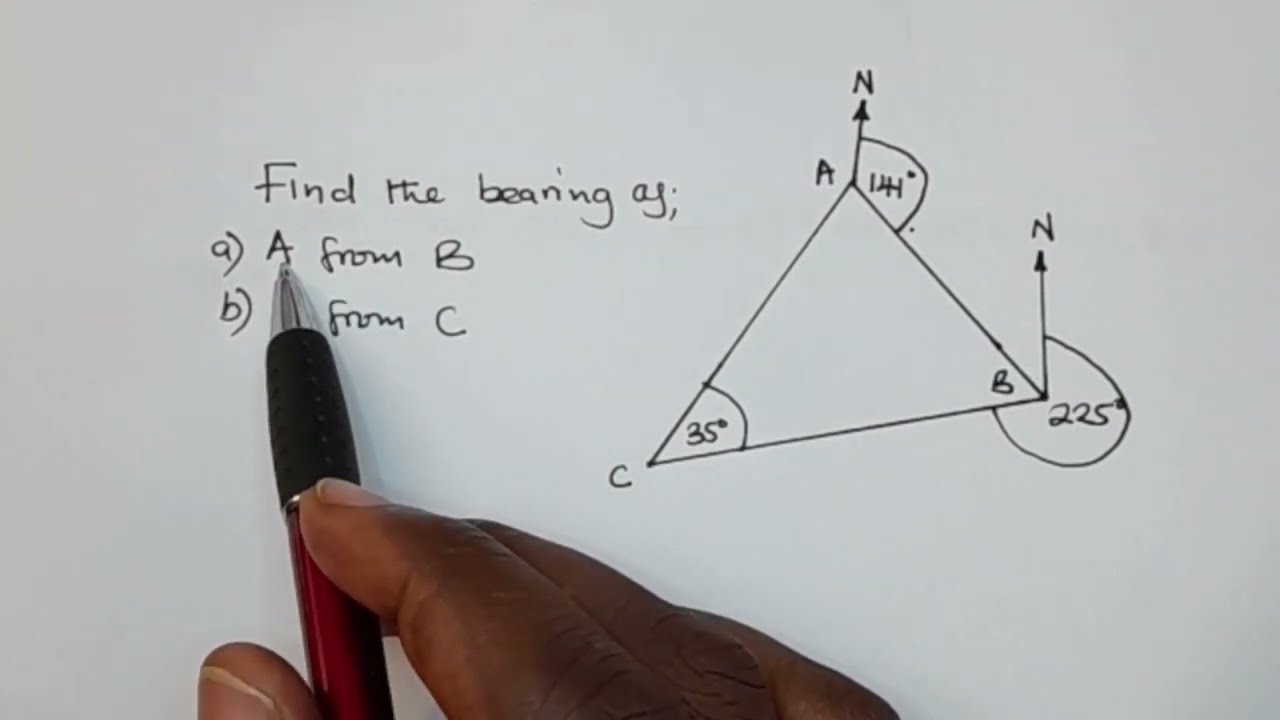 Find the bearing of;
a) A from B
b) from C
N
A 141°
N
B 225°
35°
C